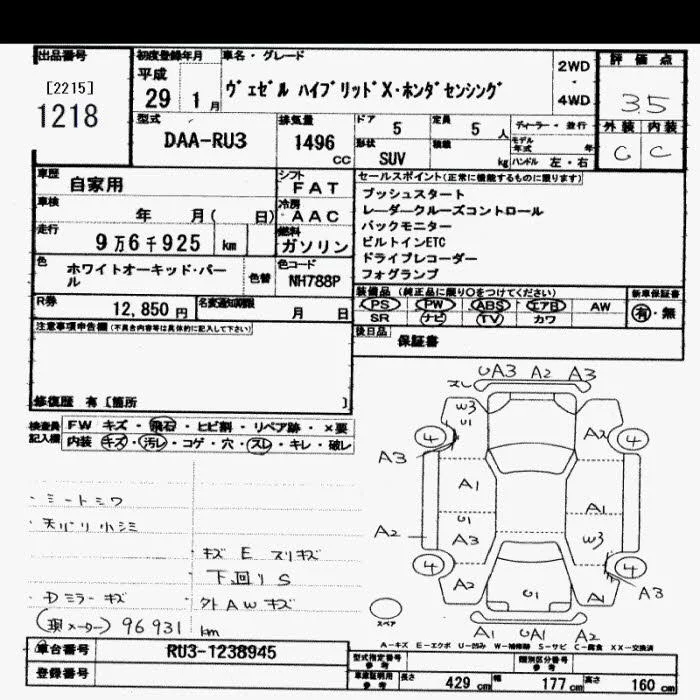 出品番号 初度登録年月 車名・グレード 2WD・4WD 評価点
[2215] 平成
1218 29 1月 ヴェゼル ハイブリッドX・ホンダセンシング 3.5
型式 DAA-RU3 排気量 1496 CC ドア 5 定員 5 人 ディーラー・並行 外装 内装
形状 SUV 積載 kg モデル年式 年 ハンドル 左・右 C C
車歴 自家用 シフト FAT セールスポイント(正常に機能するものに限ります)
車検 年 月( 日) 冷房 AAC プッシュスタート
レーダークルーズコントロール
走行 9万6千925 km 燃料 ガソリン バックモニター
ビルトインETC
色 ホワイトオーキッド・パール 色替 色コード NH788P ドライブレコーダー
フォグランプ
R券 12,850円 名変通知期限 月 日 装備品(純正品に限り○をつけてください) 新車保証書
PS PW ABS エアB AW 有・無
SR ナビ TV カワ
注意事項申告欄(不具合内容等は具体的に記入して下さい) 後日品 保証書
修復歴 有〔箇所 〕
検査員記入欄 FW キズ・飛石・ヒビ割・リペア跡・×要
内装 キズ・汚レ・コゲ・穴・スレ・キレ・破レ
UA3 A2 A3
スレ
W3
U1
4 A2 4
A3
A1 A1
U1
A2 A3 W3
4 4
A2 U1 A1 A3
スペア
A1 UA1 A2
・シートシワ
・天バリ小シミ
・キズ E スリキズ
下回リS
・Dミラーキズ ・外AWキズ
(現メーター) 96931 km
A-キズ E-エクボ U-凹み W-補修跡 S-サビ C-腐食 XX-交換済
車台番号 RU3-1238945 型式指定番号 参考 類別区分番号 参考
登録番号 車庫証明用 参考 長さ 429 cm 幅 177 cm 高さ 160 cm